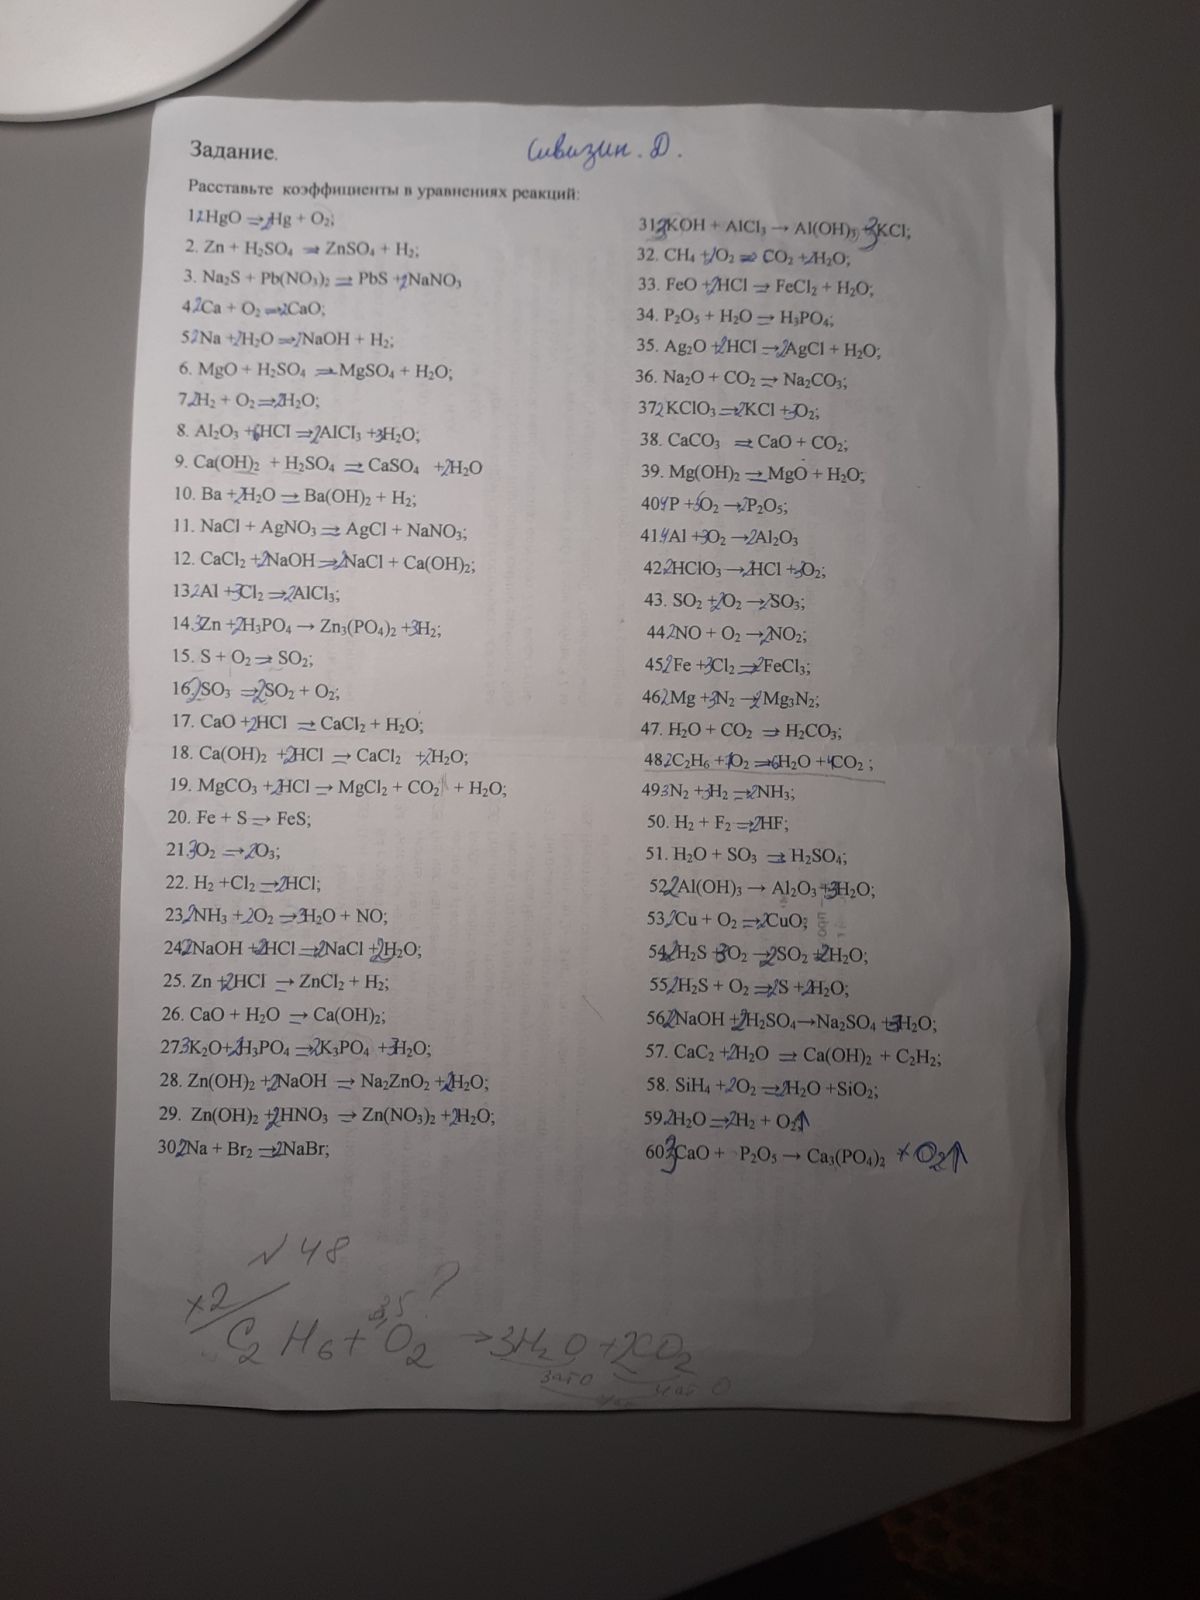 Задание.
Сивизин. Д.
Расставьте коэффициенты в уравнениях реакций:
1. 2HgO → 2Hg + O2;
2. Zn + H2SO4 → ZnSO4 + H2;
3. Na2S + Pb(NO3)2 = PbS + 2NaNO3
4. 2Ca + O2 → 2CaO;
5. 2Na + 2H2O → 2NaOH + H2;
6. MgO + H2SO4 → MgSO4 + H2O;
7. 2H2 + O2 → 2H2O;
8. Al2O3 + 6HCl → 2AlCl3 + 3H2O;
9. Ca(OH)2 + H2SO4 = CaSO4 + 2H2O
10. Ba + 2H2O → Ba(OH)2 + H2;
11. NaCl + AgNO3 = AgCl + NaNO3;
12. CaCl2 + 2NaOH → 2NaCl + Ca(OH)2;
13. 2Al + 3Cl2 → 2AlCl3;
14. 3Zn + 2H3PO4 → Zn3(PO4)2 + 3H2;
15. S + O2 → SO2;
16. 2SO3 → 2SO2 + O2;
17. CaO + 2HCl = CaCl2 + H2O;
18. Ca(OH)2 + 2HCl → CaCl2 + 2H2O;
19. MgCO3 + 2HCl → MgCl2 + CO2 + H2O;
20. Fe + S → FeS;
21. 3O2 → 2O3;
22. H2 +Cl2 → 2HCl;
23. 2NH3 + 2O2 → 3H2O + NO;
24. 2NaOH + 2HCl → 2NaCl + 2H2O;
25. Zn + 2HCl → ZnCl2 + H2;
26. CaO + H2O → Ca(OH)2;
27. 3K2O+ 2H3PO4 → 2K3PO4 + 3H2O;
28. Zn(OH)2 + 2NaOH → Na2ZnO2 + 2H2O;
29. Zn(OH)2 + 2HNO3 → Zn(NO3)2 + 2H2O;
30. 2Na + Br2 → 2NaBr;
31. 3KOH + AlCl3 → Al(OH)3 + 3KCl;
32. CH4 + O2 → CO2 + 2H2O;
33. FeO + 2HCl → FeCl2 + H2O;
34. P2O5 + H2O → H3PO4;
35. Ag2O + 2HCl → 2AgCl + H2O;
36. Na2O + CO2 → Na2CO3;
37. 2KClO3 → 2KCl + 3O2;
38. CaCO3 = CaO + CO2;
39. Mg(OH)2 → MgO + H2O;
40. 4P + 5O2 → 2P2O5;
41. 4Al + 3O2 → 2Al2O3
42. 2HClO3 → 2HCl + 3O2;
43. SO2 + 2O2 → 2SO3;
44. 2NO + O2 → 2NO2;
45. 2Fe + 3Cl2 → 2FeCl3;
46. 2Mg + 3N2 → 2Mg3N2;
47. H2O + CO2 → H2CO3;
48. 2C2H6 + 7O2 → 6H2O + 4CO2 ;
49. 3N2 + 3H2 → 2NH3;
50. H2 + F2 → 2HF;
51. H2O + SO3 → H2SO4;
52. 2Al(OH)3 → Al2O3 + 3H2O;
53. 2Cu + O2 → 2CuO;
54. 2H2S + 3O2 → 2SO2 + 2H2O;
55. 2H2S + O2 → 2S + 2H2O;
56. 2NaOH + 2H2SO4→Na2SO4 + 3H2O;
57. CaC2 + 2H2O → Ca(OH)2 + C2H2;
58. SiH4 + 2O2 → 2H2O +SiO2;
59. 2H2O → 2H2 + O2↑
60. 3CaO + P2O5 → Ca3(PO4)2 + O2↑
N 48
×2/ C2H6 + 3,5 O2 → 3H2O + 2CO2
?
3ат O
4ат O